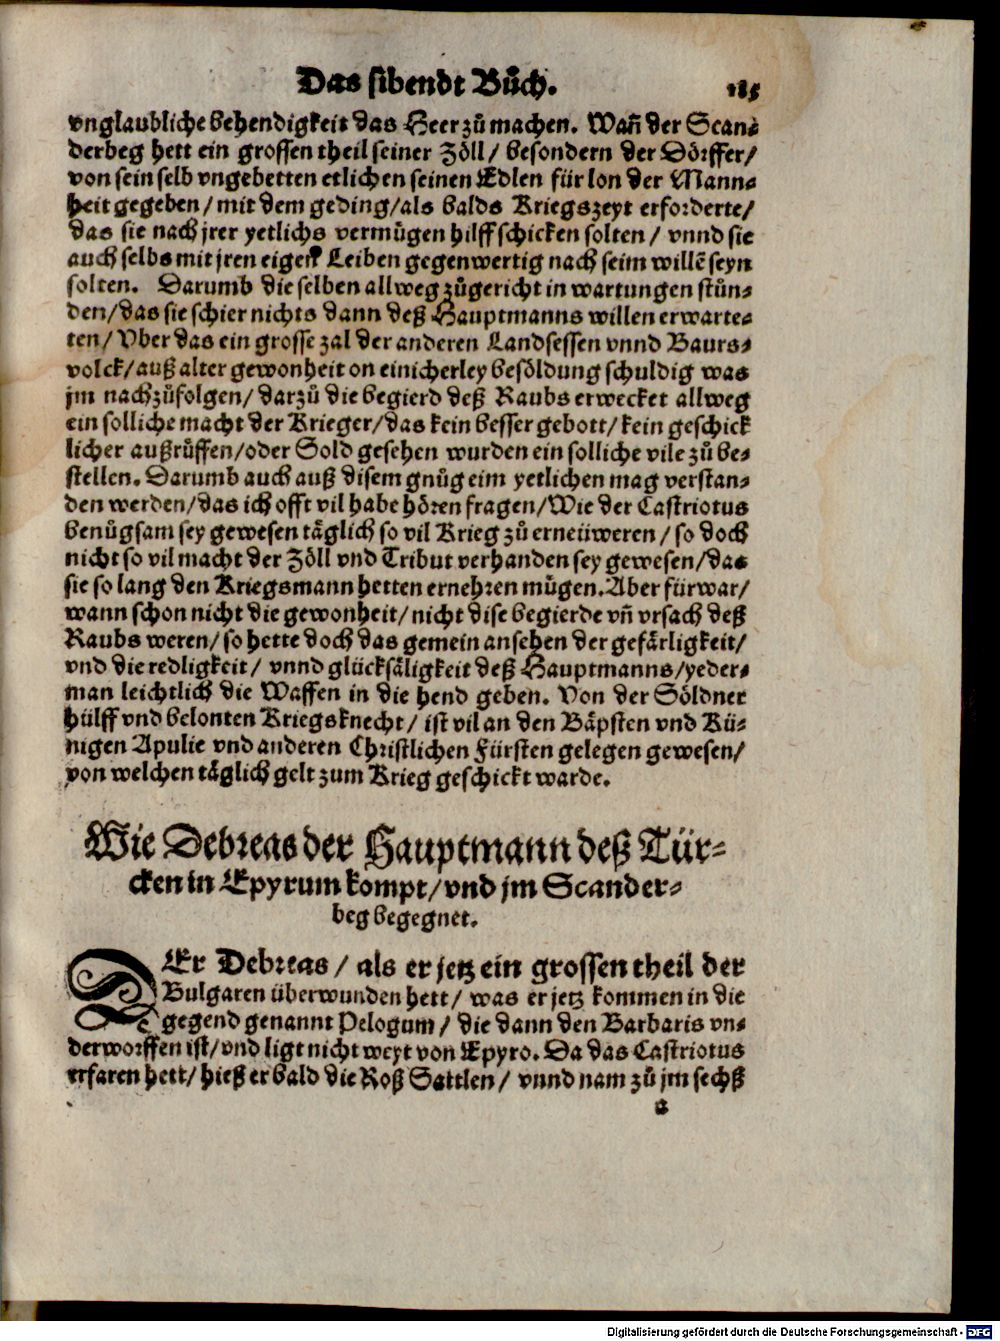 Das sibendt Bůch. 185
vnglaubliche behendigkeit das Heer zů machen. Wañ der Scan⸗
derbeg hett ein grossen theil seiner Zöll/ besondern der Dörffer/
von sein selb vngebetten etlichen seinen Edlen für lon der Mann⸗
heit gegeben/ mit dem geding/als balds Kriegszeyt erforderte/
das sie nach jrer yetlichs vermügen hilff schicken solten/ vnnd sie
auch selbs mit jren eigen Leiben gegenwertig nach seim willē seyn
solten. Darumb die selben allweg zůgericht in wartungen stün⸗
den/das sie schier nichts dann deß Hauptmanns willen erwarte⸗
ten/ Vber das ein grosse zal der anderen Landsessen vnnd Baurs⸗
volck/auß alter gewonheit on einicherley besöldung schuldig was
jm nachzůfolgen/ darzů die begierd deß Raubs erwecket allweg
ein solliche macht der Krieger/das kein besser gebott/kein geschick
licher außrůffen/oder Sold gesehen wurden ein solliche vile zů be⸗
stellen. Darumb auch auß disem gnůg eim yetlichen mag verstan⸗
den werden/das ich offt vil habe hören fragen/Wie der Castriotus
benůgsam sey gewesen täglich so vil Krieg zů erneüweren/ so doch
nicht so vil macht der Zöll vnd Tribut verhanden sey gewesen/das
sie so lang den Kriegsmann hetten ernehren mügen. Aber fürwar/
wann schon nicht die gewonheit/ nicht dise begierde vñ vrsach deß
Raubs weren/ so hette doch das gemein ansehen der gefärligkeit/
vnd die redligkeit/ vnnd glücksäligkeit deß Hauptmanns/yeder⸗
man leichtlich die Waffen in die hend geben. Von der Söldner
hülff vnd belonten Kriegsknecht/ ist vil an den Bäpsten vnd Kü⸗
nigen Apulie vnd anderen Christlichen Fürsten gelegen gewesen/
von welchen täglich gelt zum Krieg geschickt warde.
Wie Debreas der Hauptmann deß Tür⸗
cken in Epyrum kompt/vnd jm Scander⸗
beg begegnet.
DEr Debreas/ als er jetz ein grossen theil der
Bulgaren überwunden hett/ was er jetz kommen in die
gegend genannt Pelogum/ die dann den Barbaris vn⸗
derworffen ist/vnd ligt nicht weyt von Epyro. Da das Castriotus
erfaren hett/ hieß er bald die Roß Sattlen/ vnnd nam zů jm sechß
a
Digitalisierung gefördert durch die Deutsche Forschungsgemeinschaft - DFG